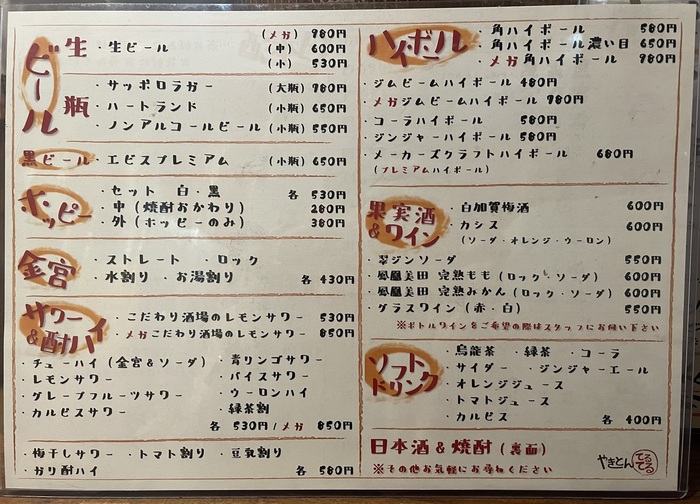 ビール
生 ・生ビール (メガ) 980円
(中) 600円
(小) 530円
瓶 ・サッポロラガー (大瓶) 980円
・ハートランド (小瓶) 650円
・ノンアルコールビール (小瓶) 550円
黒ビール ・エビスプレミアム (小瓶) 650円
ホッピー
・セット 白・黒 各 530円
・中 (焼酎おかわり) 280円
・外 (ホッピーのみ) 380円
金宮
・ストレート ・ロック
・水割り ・お湯割り 各 430円
サワー&酎ハイ
・こだわり酒場のレモンサワー 530円
・メガこだわり酒場のレモンサワー 850円
・チューハイ (金宮&ソーダ) ・青リンゴサワー
・レモンサワー ・バイスサワー
・グレープフルーツサワー ・ウーロンハイ
・カルピスサワー ・緑茶割
各 530円/メガ 850円
・梅干しサワー ・トマト割り ・豆乳割り
・ガリ酎ハイ 各 580円
ハイボール
・角ハイボール 580円
・角ハイボール濃い目 650円
・メガ角ハイボール 980円
・ジムビームハイボール 480円
・メガジムビームハイボール 980円
・コーラハイボール 580円
・ジンジャーハイボール 580円
・メーカーズクラフトハイボール 680円
(プレミアムハイボール)
果実酒&ワイン
・白加賀梅酒 600円
・カシス 600円
(ソーダ・オレンジ・ウーロン)
・翠ジンソーダ 550円
・鳳凰美田 完熟もも (ロック・ソーダ) 600円
・鳳凰美田 完熟みかん (ロック・ソーダ) 600円
・グラスワイン (赤・白) 550円
※ボトルワインをご希望の際はスタッフにお伺い下さい
ソフトドリンク
・烏龍茶 ・緑茶 ・コーラ
・サイダー ・ジンジャーエール
・オレンジジュース
・トマトジュース
・カルピス 各 400円
日本酒&焼酎 (裏面)
※その他お気軽にお尋ねください
やきとん てるてる